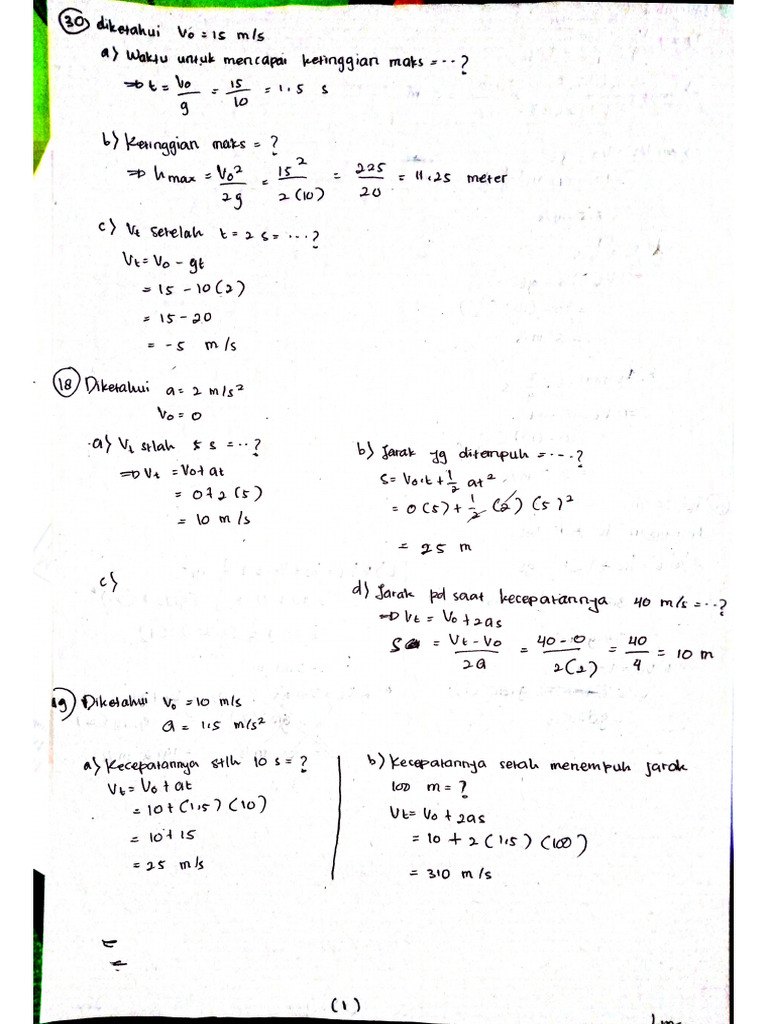 30) diketahui Vo = 15 m/s
a) Waktu untuk mencapai ketinggian maks = ...?
⇒ t = Vo/g = 15/10 = 1.5 s
b) Ketinggian maks = ?
⇒ hmax = Vo²/2g = 15²/2(10) = 225/20 = 11.25 meter
c) Vt setelah t = 2 s = ...?
Vt = Vo - gt
= 15 - 10(2)
= 15 - 20
= -5 m/s
18) Diketahui a = 2 m/s²
Vo = 0
a) Vt stlah 5 s = ...?
⇒ Vt = Vo + at
= 0 + 2 (5)
= 10 m/s
b) Jarak yg ditempuh = ...?
s = Vo.t + 1/2 at²
= 0 (5) + 1/2 (2) (5)²
= 25 m
c)
d) Jarak pd saat kecepatannya 40 m/s = ...?
⇒ Vt = Vo + 2as
s = Vt - Vo/2a = 40 - 0/2(2) = 40/4 = 10 m
19) Diketahui Vo = 10 m/s
a = 1.5 m/s²
a) Kecepatannya stlh 10 s = ?
Vt = Vo + at
= 10 + (1,5) (10)
= 10 + 15
= 25 m/s
b) Kecepatannya setah menempuh jarak
100 m = ?
Vt = Vo + 2as
= 10 + 2 (1,5) (100)
= 310 m/s
=
=
(1)